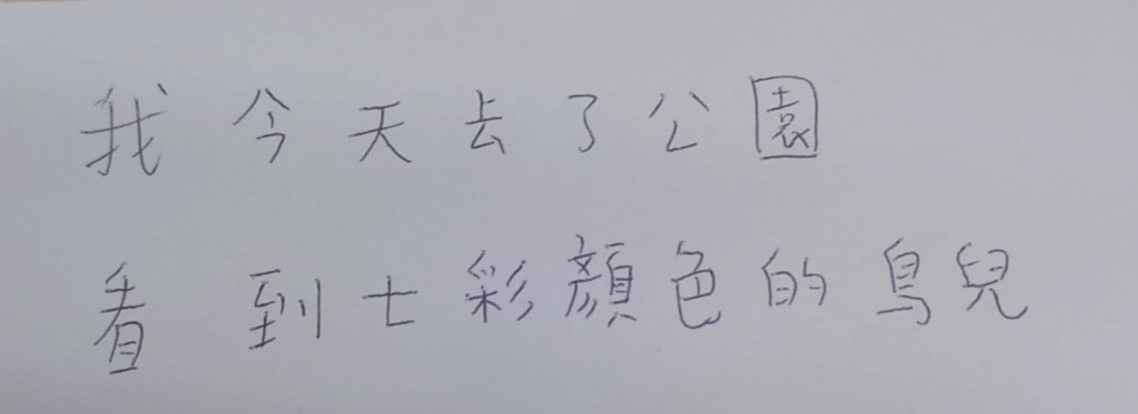 我今天去了公園
看到七彩顏色的鳥兒